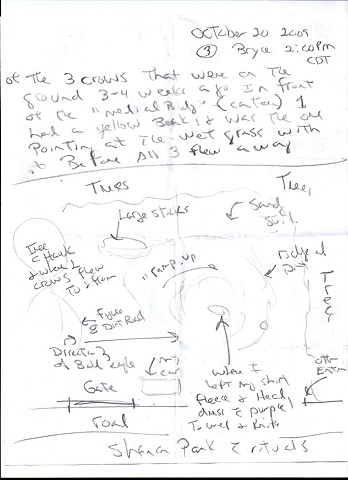 October 20 2009
③ Bryce 2:00pm
CDT
of the 3 crows that were on the
ground 3-4 weeks ago In front
of the "medial Body" (cater) 1
had a yellow Beak, & was the one
Pointing at the wet grass with
it Before All 3 flew away
Trees
Trees
Large sticks
Sandy
Soil
Tree
c Hawk
& where 2
crows flew
to & from
"ramp" up
Trees
Figure
8 Dirt Road
Direction
of Bald eagle
my
car
when I
left my shirt
fleece & Head
dress & purple
Towel & Knife
Other
Entran
Gate
road
Park & rituals